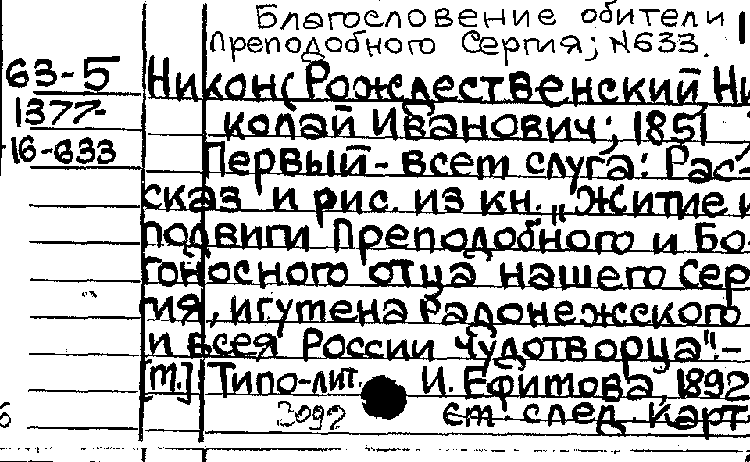 Благословение обители
Преподобного Сергия; №633.
63-5 Никон (Рождественский Ни
1377- колай Иванович; 1851
16-633 Первый - всем слуга: Рас-
сказ и рис. из кн. „Житие и
подвиги Преподобного и Бо-
гоносного отца нашего Сер
гия, игумена Радонежского
и всея России чудотворца".-
[М.] Типо-лит. И. Ефимова, 1892
3092 см. след. карт